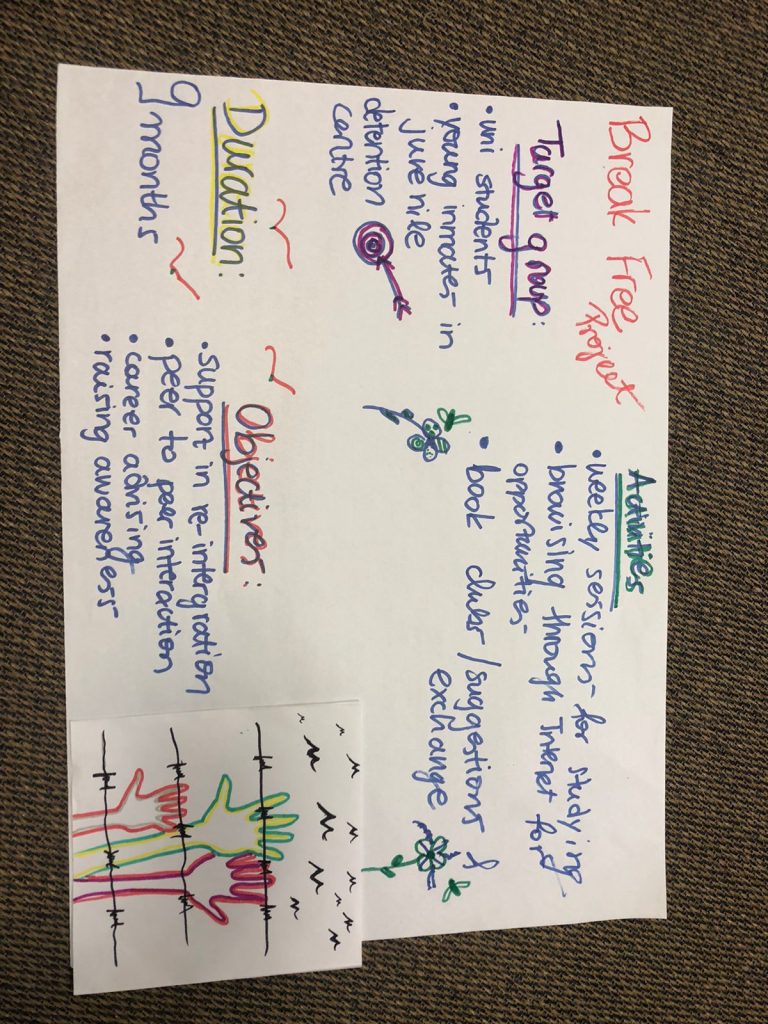 Break Free
Project
Target group:
• uni students
• young inmates in
juvenile
detention
centre
Activities
• weekly sessions for studying
• browising through Internet for
opportunities
• book clubs / suggestions
exchange
Duration:
9 months
Objectives:
• support in re-intergration
• peer to peer interaction
• career advising
• raising awareness